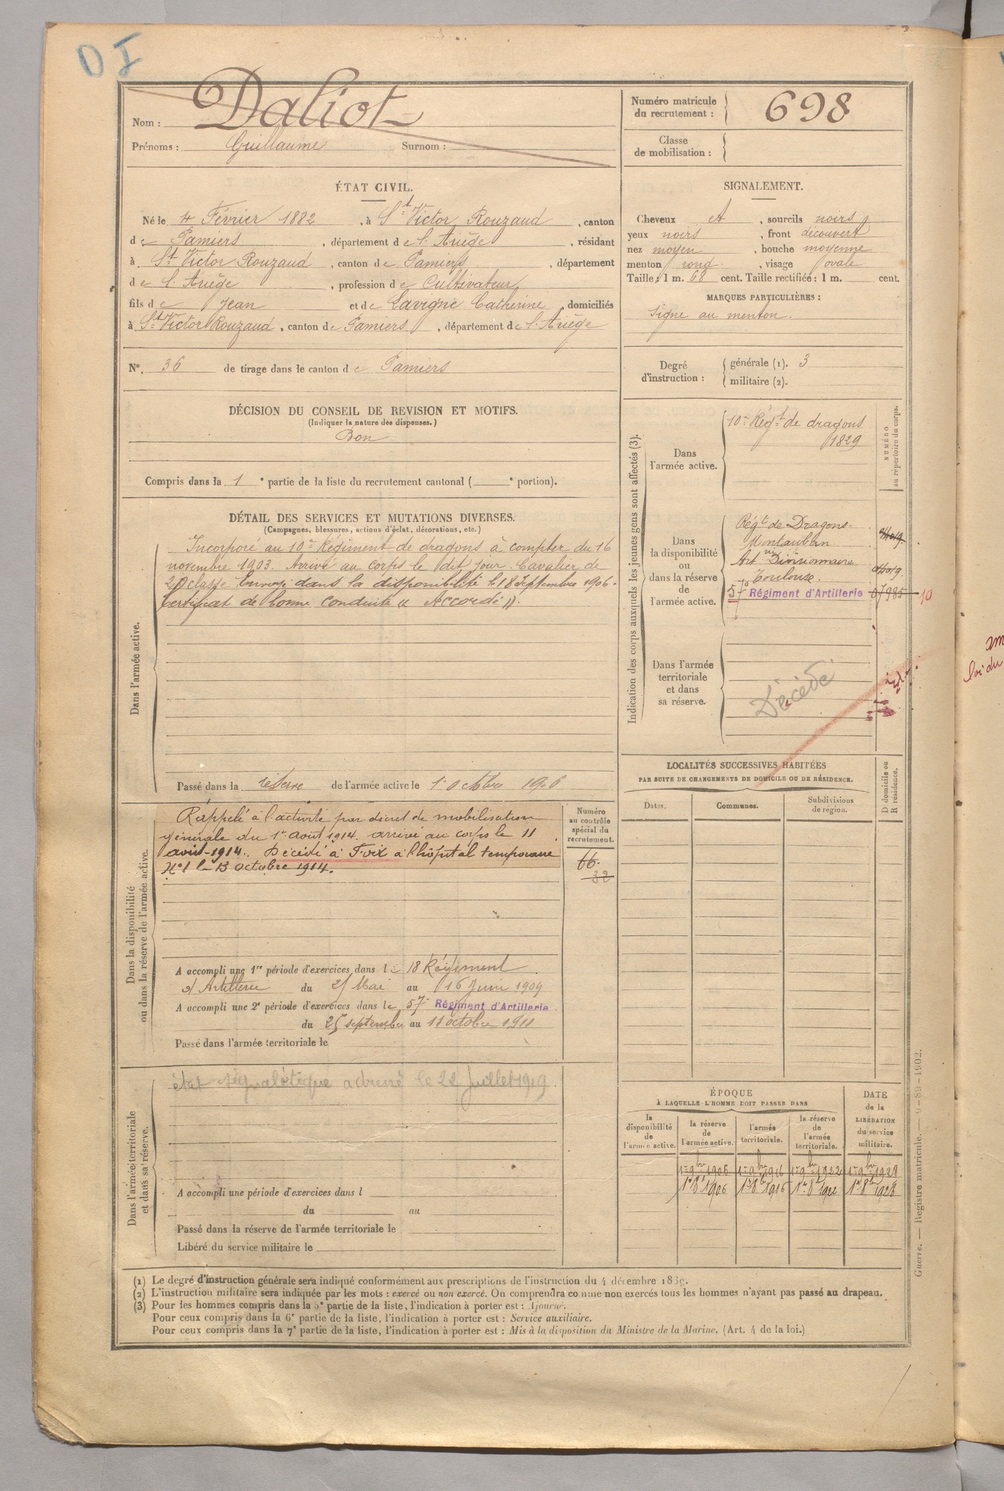 DI
Nom : Daliot
Prénoms : Guillaume Surnom :
Numéro matricule
du recrutement : 698
Classe
de mobilisation :
ÉTAT CIVIL.
Né le 4 Février 1882, à St Victor Rouzaud, canton
de Pamiers, département de l'Ariège, résidant
à St Victor Rouzaud, canton de Pamiers, département
de l'Ariège, profession de Cultivateur,
fils de Jean et de Lavigne Catherine, domiciliés
à St Victor Rouzaud, canton de Pamiers, département de l'Ariège
N°. 36 de tirage dans le canton de Pamiers
SIGNALEMENT.
Cheveux et, sourcils noirs,
yeux noirs, front découvert
nez moyen, bouche moyenne
menton rond, visage ovale
Taille : 1 m. 68 cent. Taille rectifiée : 1 m. cent.
MARQUES PARTICULIÈRES :
Signe au menton.
Degré
d'instruction :
générale (1). 3
militaire (2).
DÉCISION DU CONSEIL DE REVISION ET MOTIFS.
(Indiquer la nature des dispenses.)
Bon
Compris dans la 1e partie de la liste du recrutement cantonal ( e portion).
DÉTAIL DES SERVICES ET MUTATIONS DIVERSES.
(Campagnes, blessures, actions d'éclat, décorations, etc.)
Dans l'armée active.
Incorporé au 10e Régiment de dragons à compter du 16
novembre 1903. Arrivé au corps le dit jour. Cavalier de
2e classe. Envoyé dans la disponibilité le 18 septembre 1906.
Certificat de bonne conduite « Accordé ».
Passé dans la réserve de l'armée active le 1er Octobre 1906
Indication des corps auxquels les jeunes gens sont affectés (3).
NUMÉRO
au répertoire du corps.
Dans
l'armée active.
10e Régt de dragons
1829
Dans
la disponibilité
ou
dans la réserve
de
l'armée active.
Régt de Dragons
Montauban
Art Divisionnaire
Toulouse.
57e Régiment d'Artillerie
10
Dans l'armée
territoriale
et dans
sa réserve.
Décédé
LOCALITÉS SUCCESSIVES HABITÉES
PAR SUITE DE CHANGEMENTS DE DOMICILE OU DE RÉSIDENCE.
Dates. Communes. Subdivisions
de région.
D domicile ou
R résidence.
Dans la disponibilité
ou dans la réserve de l'armée active.
Rappelé à l'activité par décret de mobilisation
générale du 1er Août 1914. arrivé au corps le 11
août 1914. Décédé à Foix à l'hôpital temporaire
N°1 le 13 octobre 1914.
Numéro
au contrôle
spécial du
recrutement.
66
32
A accompli une 1re période d'exercices dans le 18 Régiment
d'Artillerie du 25 Mai au 16 Juin 1909
A accompli une 2e période d'exercices dans le 57e Régiment d'Artillerie
du 25 septembre au 11 octobre 1911
Passé dans l'armée territoriale le
Dans l'armée territoriale
et dans sa réserve.
état signalétique adressé le 22 Juillet 1919
A accompli une période d'exercices dans l
du au
Passé dans la réserve de l'armée territoriale le
Libéré du service militaire le
ÉPOQUE
À LAQUELLE L'HOMME DOIT PASSER DANS
la
disponibilité
de
l'armée active.
la réserve
de
l'armée active.
l'armée
territoriale.
la réserve
de
l'armée
territoriale.
DATE
de la
LIBÉRATION
du service
militaire.
1er 9bre 1906 1er 9bre 1916 1er 9bre 1922 1er 9bre 1928
1er 8bre 1906 1er 8bre 1916 1er 8bre 1922 1er 8bre 1928
(1) Le degré d'instruction générale sera indiqué conformément aux prescriptions de l'instruction du 4 décembre 1889.
(2) L'instruction militaire sera indiquée par les mots : exercé ou non exercé. On comprendra comme non exercés tous les hommes n'ayant pas passé au drapeau.
(3) Pour les hommes compris dans la 5e partie de la liste, l'indication à porter est : Ajourné.
Pour ceux compris dans la 6e partie de la liste, l'indication à porter est : Service auxiliaire.
Pour ceux compris dans la 7e partie de la liste, l'indication à porter est : Mis à la disposition du Ministre de la Marine. (Art. 4 de la loi.)
Guerre. — Registre matricule. 1902.
loi du